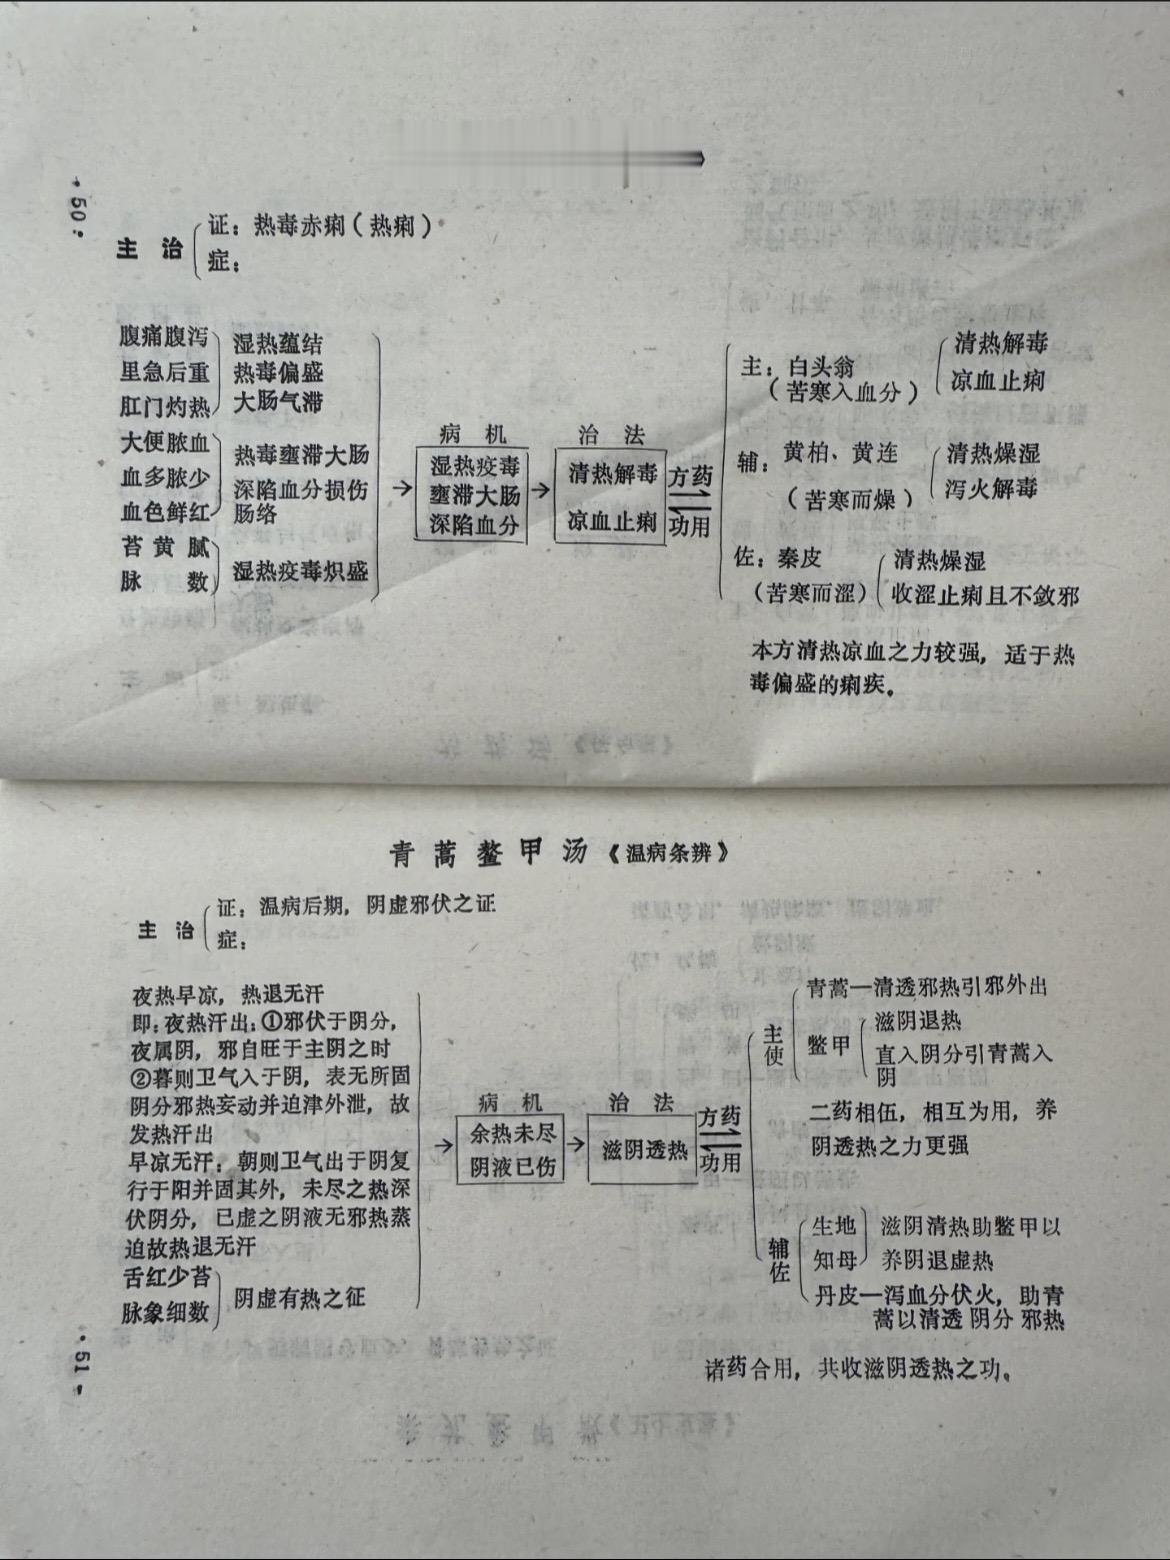 ·50·
主 治
证：热毒赤痢（热痢）
症：
腹痛腹泻
里急后重
肛门灼热
湿热蕴结
热毒偏盛
大肠气滞
大便脓血
血多脓少
血色鲜红
热毒壅滞大肠
深陷血分损伤
肠络
苔黄腻
脉 数
湿热疫毒炽盛
病 机
湿热疫毒
壅滞大肠
深陷血分
治 法
清热解毒
凉血止痢
方药
功用
主：白头翁
（苦寒入血分）
清热解毒
凉血止痢
辅：黄柏、黄连
（苦寒而燥）
清热燥湿
泻火解毒
佐：秦皮
（苦寒而涩）
清热燥湿
收涩止痢且不敛邪
本方清热凉血之力较强，适于热
毒偏盛的痢疾。
青蒿鳌甲汤《温病条辨》
主 治
证：温病后期，阴虚邪伏之证
症：
夜热早凉，热退无汗
即：夜热汗出：①邪伏于阴分，
夜属阴，邪自旺于主阴之时
②暮则卫气入于阴，表无所固
阴分邪热妄动并迫津外泄，故
发热汗出
早凉无汗：朝则卫气出于阴复
行于阳并固其外，未尽之热深
伏阴分，已虚之阴液无邪热蒸
迫故热退无汗
舌红少苔
脉象细数
阴虚有热之征
病 机
余热未尽
阴液已伤
治 法
滋阴透热
方药
功用
主使
青蒿—清透邪热引邪外出
鳖甲
滋阴退热
直入阴分引青蒿入
阴
二药相伍，相互为用，养
阴透热之力更强
辅佐
生地
知母
滋阴清热助鳖甲以
养阴退虚热
丹皮—泻血分伏火，助青
蒿以清透阴分邪热
诸药合用，共收滋阴透热之功。
·51·